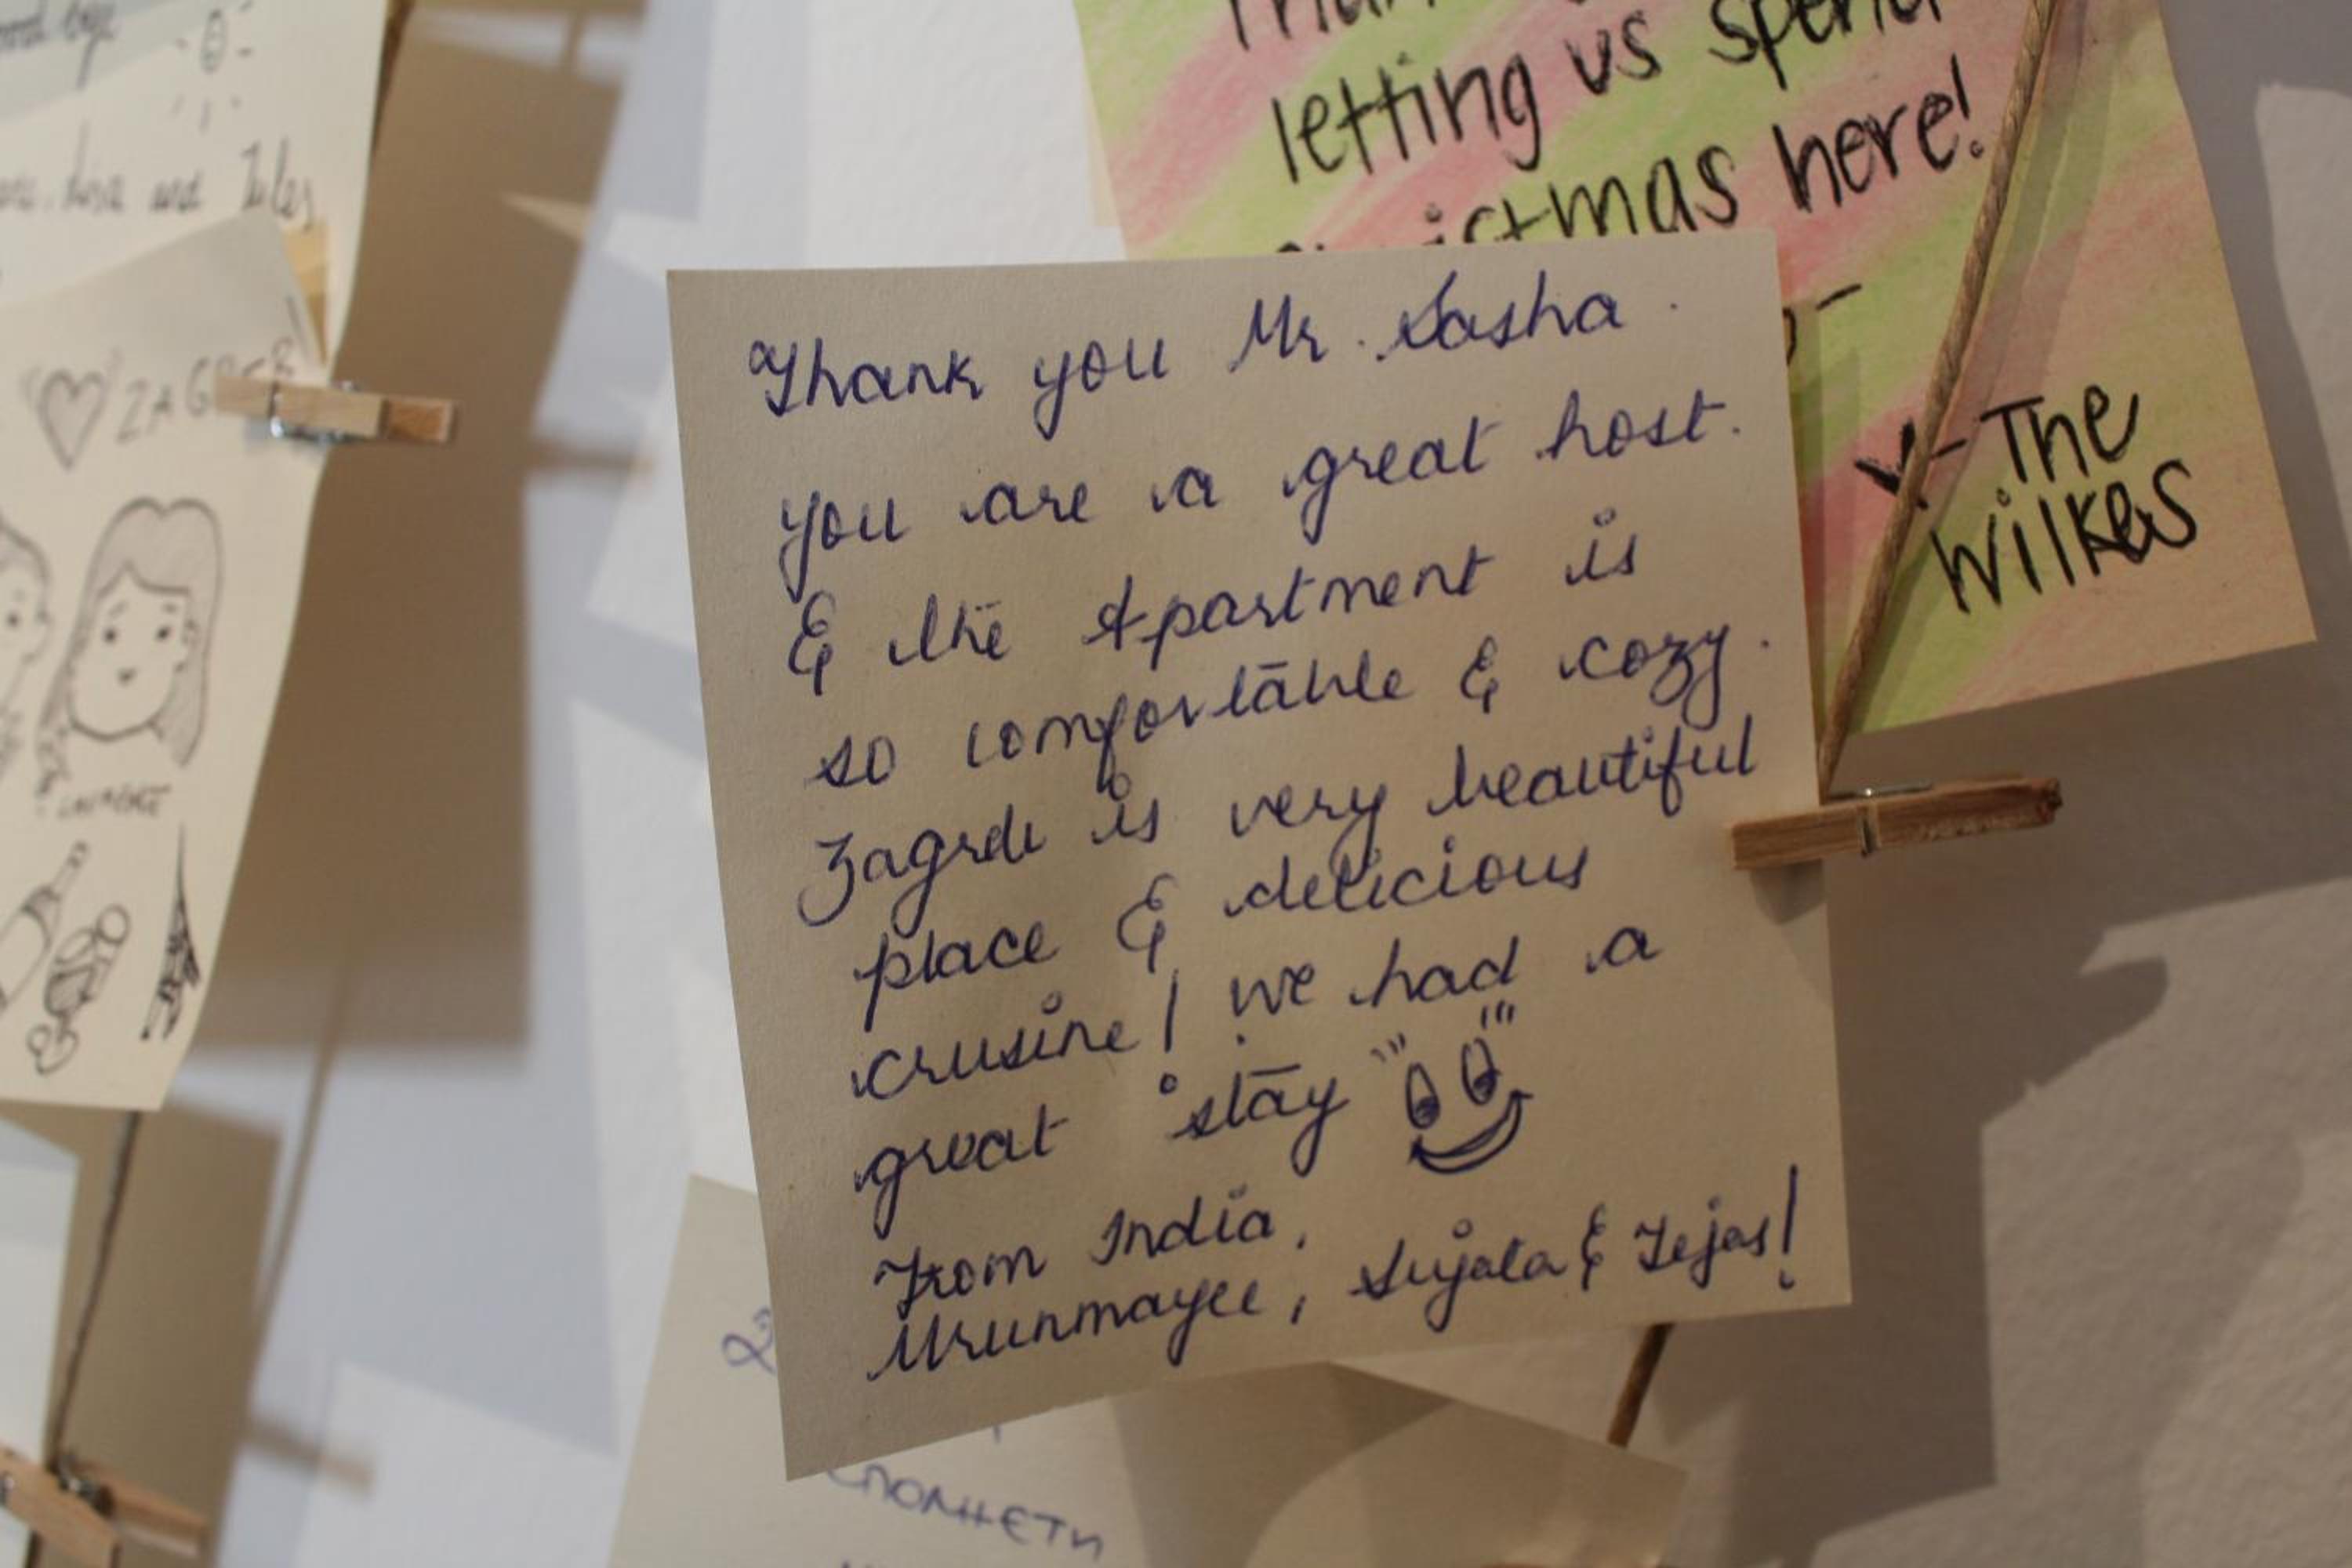 letting us
here!
- The
Wilkes
and Jules
Thank you Mr. Sasha.
you are a great host.
& the Apartment is
so comfortable & cozy.
Zagreb is very beautiful
place & delicious
crusine! we had a
great stay
From India,
Mrunmayee, Sujata & Tejas!